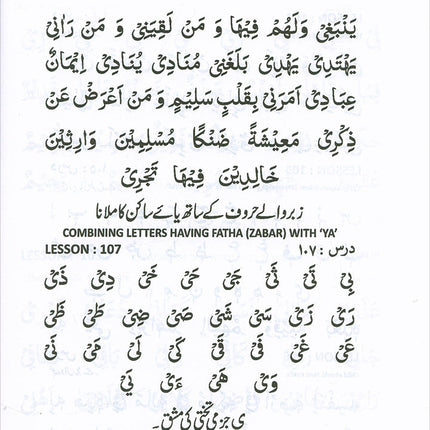 يَنْبَغِيْ وَلَهُمْ فِيْهَا وَ مَنْ لَقِيَنِيْ وَ مَنْ رَاٰنِيْ
يَهْتَدِيْ يَهْدِيْ بَلَغَنِيْ مُنَادِيْ يُنَادِيْ اِيْمَانٌ
عِبَادِيْ اَمَرَنِيْ بِقَلْبٍ سَلِيْمٍ وَ مَنْ اَعْرَضَ عَنْ
ذِكْرِيْ مَعِيْشَةً ضَنْكًا مُسْلِمِيْنَ وَارِثِيْنَ
خَالِدِيْنَ فِيْهَا تَجْرِيْ
زبر والے حروف کے ساتھ یائے ساکن کا ملانا
COMBINING LETTERS HAVING FATHA (ZABAR) WITH ‘YA’
LESSON : 107 درس : ۱۰۷
بَيْ تَيْ ثَيْ جَيْ حَيْ خَيْ دَيْ ذَيْ
رَيْ زَيْ سَيْ شَيْ صَيْ ضَيْ طَيْ ظَيْ
عَيْ غَيْ فَيْ قَيْ كَيْ لَيْ مَيْ نَيْ
وَيْ هَيْ ءَيْ يَيْ
ی جزمی تختی کی مشق۔